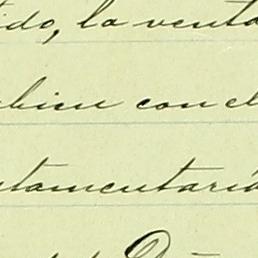 ido, la venta
bien con el
stamentaria